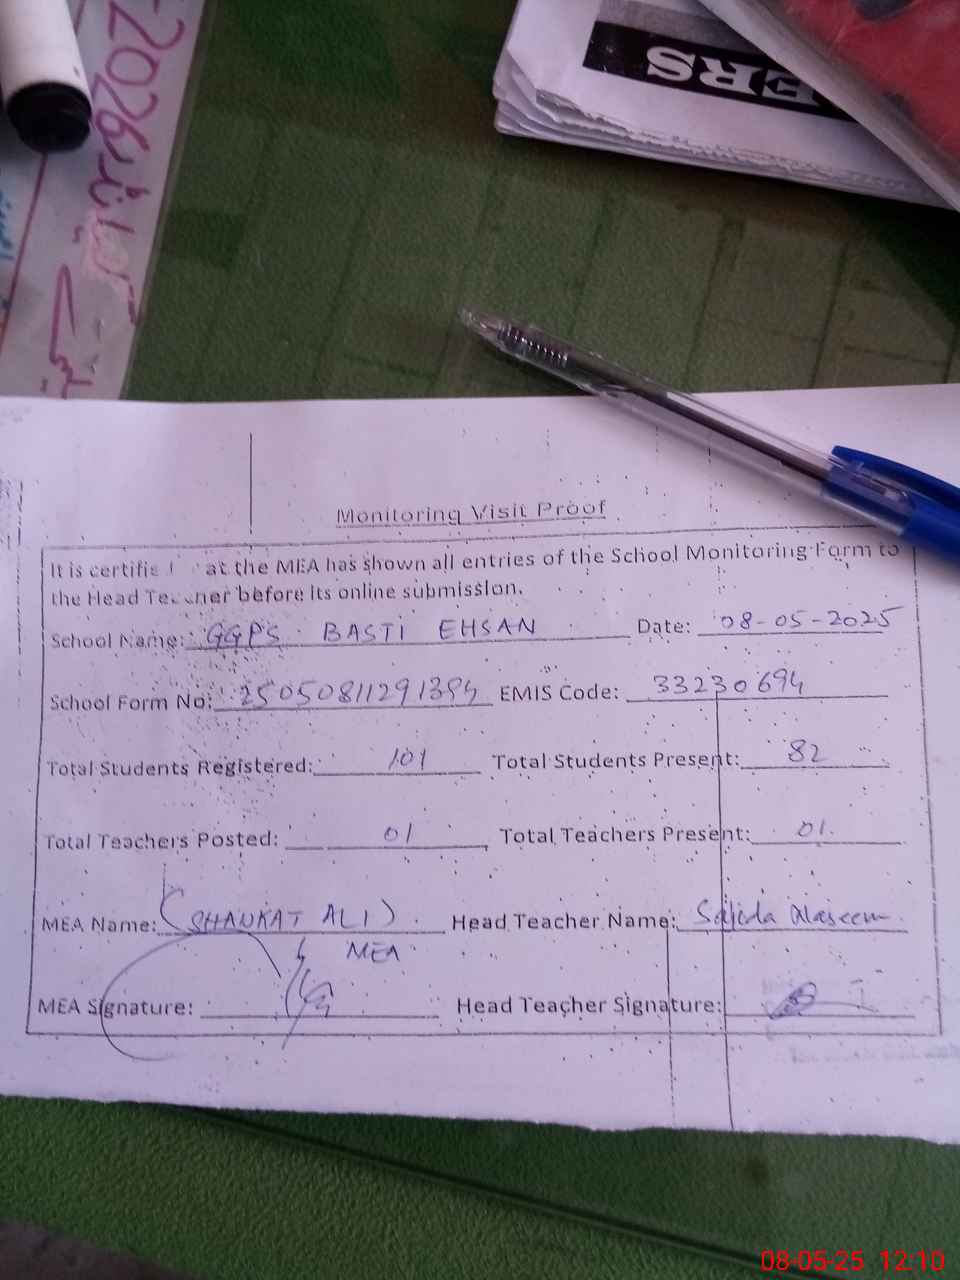 2026
ERS
Monitoring Visit Proof
It is certified at the MEA has shown all entries of the School Monitoring Form to
the Head Teacher before its online submission.
School Name: GGPS BASTI EHSAN Date: 08-05-2025
School Form No: 25050811291394 EMIS Code: 33230694
Total Students Registered: 101 Total Students Present: 82
Total Teachers Posted: 01 Total Teachers Present: 01
MEA Name: (SHAUKAT ALI) Head Teacher Name: Sajida Naseem
MEA
MEA Signature: Head Teacher Signature:
08-05-25 12:10